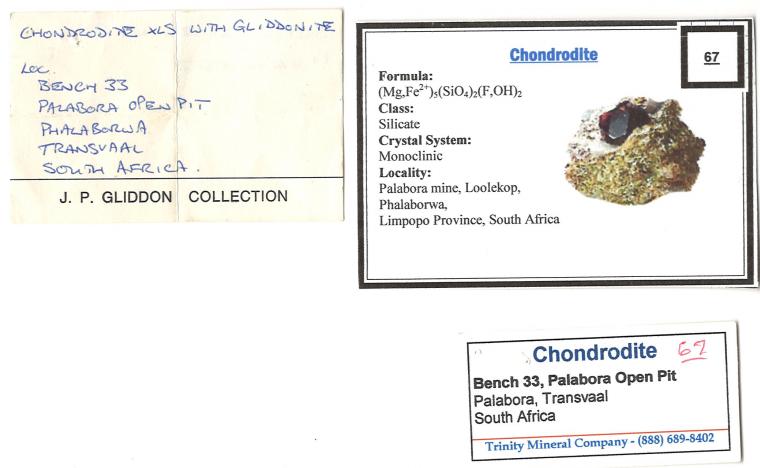 CHONDRODITE XLS WITH GLIDDONITE
LOC.
BENCH 33
PALABORA OPEN PIT
PHALABORWA
TRANSVAAL
SOUTH AFRICA.
J. P. GLIDDON COLLECTION
Chondrodite
67
Formula:
(Mg,Fe²⁺)₅(SiO₄)₂(F,OH)₂
Class:
Silicate
Crystal System:
Monoclinic
Locality:
Palabora mine, Loolekop,
Phalaborwa,
Limpopo Province, South Africa
Chondrodite 67
Bench 33, Palabora Open Pit
Palabora, Transvaal
South Africa
Trinity Mineral Company - (888) 689-8402